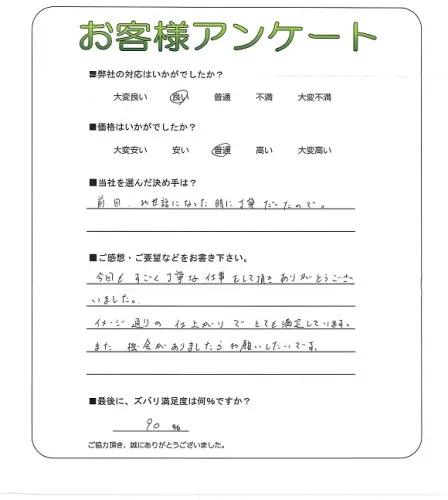 お客様アンケート
■弊社の対応はいかがでしたか？
大変良い 良い 普通 不満 大変不満
■価格はいかがでしたか？
大変安い 安い 普通 高い 大変高い
■当社を選んだ決め手は？
前回、お世話になった時に丁寧だったので。
■ご感想・ご要望などをお書き下さい。
今回も すごく丁寧な仕事をして頂きありがとうござ
いました。
イメージ通りの仕上がりでとても満足しています。
また機会がありましたらお願いしたいです。
■最後に、ズバリ満足度は何％ですか？
90 %
ご協力頂き、誠にありがとうございました。